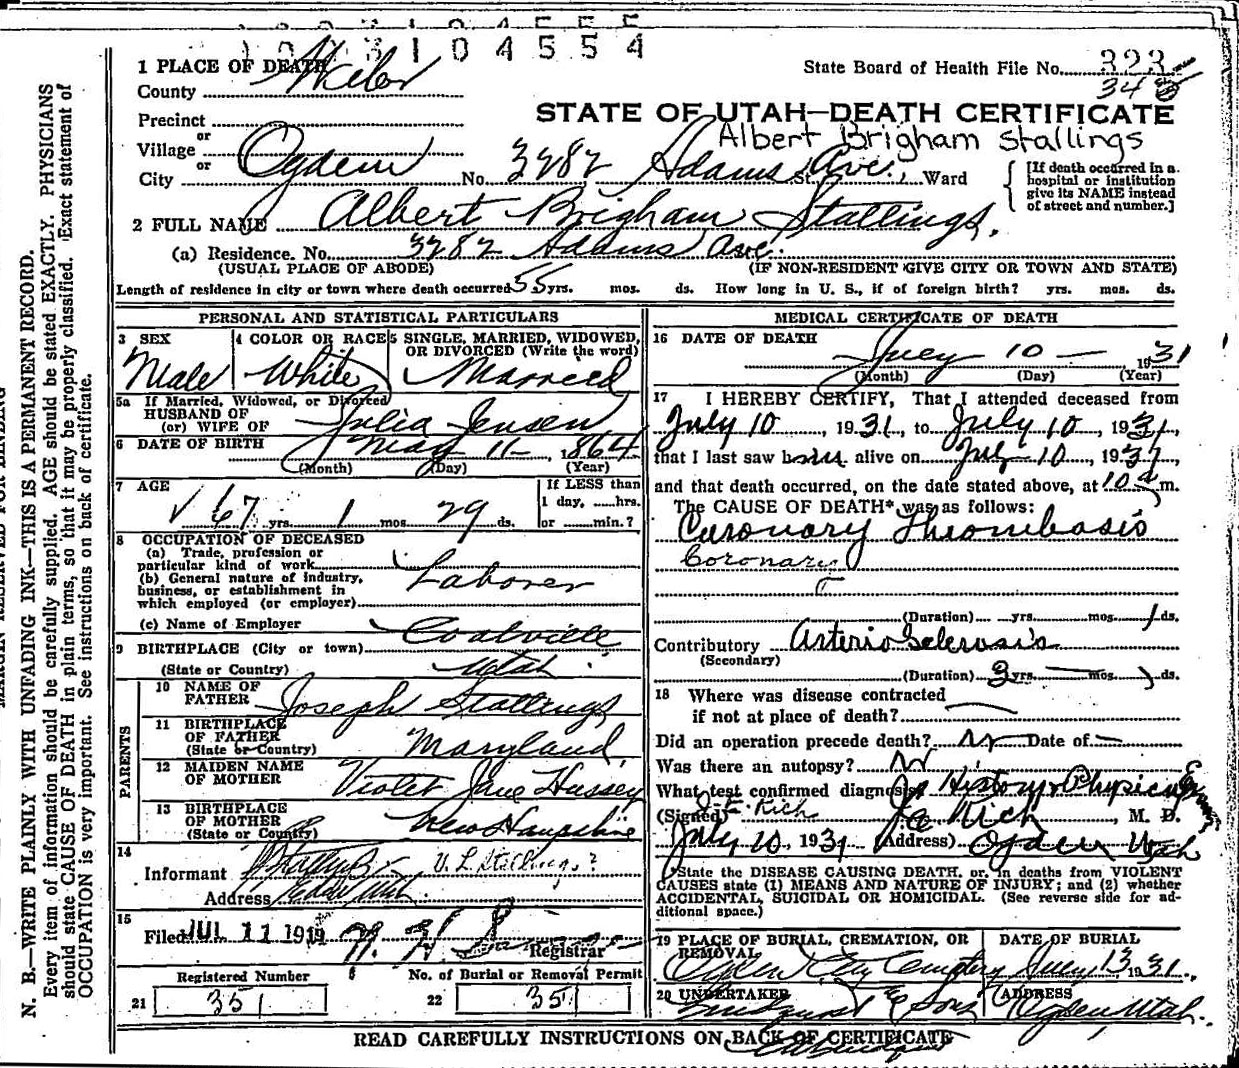 10 4 5 5 4
1 PLACE OF DEATH
County Weber
State Board of Health File No. 323
34
Precinct
or
Village
or
City Ogden No. 3282 Adams Ave., St., Ward
STATE OF UTAH—DEATH CERTIFICATE
Albert Brigham Stallings
[If death occurred in a
hospital or institution
give its NAME instead
of street and number.]
2 FULL NAME Albert Brigham Stallings.
(a) Residence. No. 3282 Adams Ave.
(USUAL PLACE OF ABODE) (IF NON-RESIDENT GIVE CITY OR TOWN AND STATE)
Length of residence in city or town where death occurred 55 yrs. mos. ds. How long in U. S., if of foreign birth? yrs. mos. ds.
PERSONAL AND STATISTICAL PARTICULARS
3 SEX 4 COLOR OR RACE 5 SINGLE, MARRIED, WIDOWED,
OR DIVORCED (Write the word)
Male White Married
5a If Married, Widowed, or Divorced
HUSBAND OF
(or) WIFE OF Julia Jensen
6 DATE OF BIRTH May 11 – , 1864
(Month) (Day) (Year)
7 AGE If LESS than
1 day, ......hrs.
67 yrs. 1 mos. 29 ds. or ........min.?
8 OCCUPATION OF DECEASED
(a) Trade, profession or
particular kind of work
(b) General nature of industry,
business, or establishment in
which employed (or employer) Laborer
(c) Name of Employer
9 BIRTHPLACE (City or town) Coalville
(State or Country) Utah
PARENTS
10 NAME OF
FATHER Joseph Stallings
11 BIRTHPLACE
OF FATHER
(State or Country) Maryland
12 MAIDEN NAME
OF MOTHER Violet Jane Hussey
13 BIRTHPLACE
OF MOTHER
(State or Country) New Hampshire
14
Informant V. L. Stallings?
Address
15
Filed JUL 11 19
Registrar
Registered Number No. of Burial or Removal Permit
21 351 22 351
MEDICAL CERTIFICATE OF DEATH
16 DATE OF DEATH
July 10 – 1931
(Month) (Day) (Year)
17 I HEREBY CERTIFY, That I attended deceased from
July 10, 1931, to July 10, 1931,
that I last saw him alive on July 10, 1931,
and that death occurred, on the date stated above, at 10 a m.
The CAUSE OF DEATH* was as follows:
Coronary Thrombosis
Coronary
T
(Duration) yrs. mos. 1 ds.
Contributory Arterio Sclerosis
(Secondary)
(Duration) 3 yrs. mos. ds.
18 Where was disease contracted
if not at place of death?
Did an operation precede death? No Date of –
Was there an autopsy? No
What test confirmed diagnosis? History & Physical
J. E. Rich
(Signed) J E Rich, M. D.
July 10, 1931 (Address) Ogden Utah
*State the DISEASE CAUSING DEATH, or, in deaths from VIOLENT
CAUSES state (1) MEANS AND NATURE OF INJURY; and (2) whether
ACCIDENTAL, SUICIDAL OR HOMICIDAL. (See reverse side for ad-
ditional space.)
19 PLACE OF BURIAL, CREMATION, OR DATE OF BURIAL
REMOVAL
Ogden City Cemetery July 13, 1931.
20 UNDERTAKER (ADDRESS
Lindquist & Sons Ogden, Utah.
READ CAREFULLY INSTRUCTIONS ON BACK OF CERTIFICATE
MARGIN RESERVED FOR BINDING
N. B.—WRITE PLAINLY WITH UNFADING INK—THIS IS A PERMANENT RECORD.
Every item of information should be carefully supplied. AGE should be stated EXACTLY. PHYSICIANS
should state CAUSE OF DEATH in plain terms, so that it may be properly classified. Exact statement of
OCCUPATION is very important. See instructions on back of certificate.